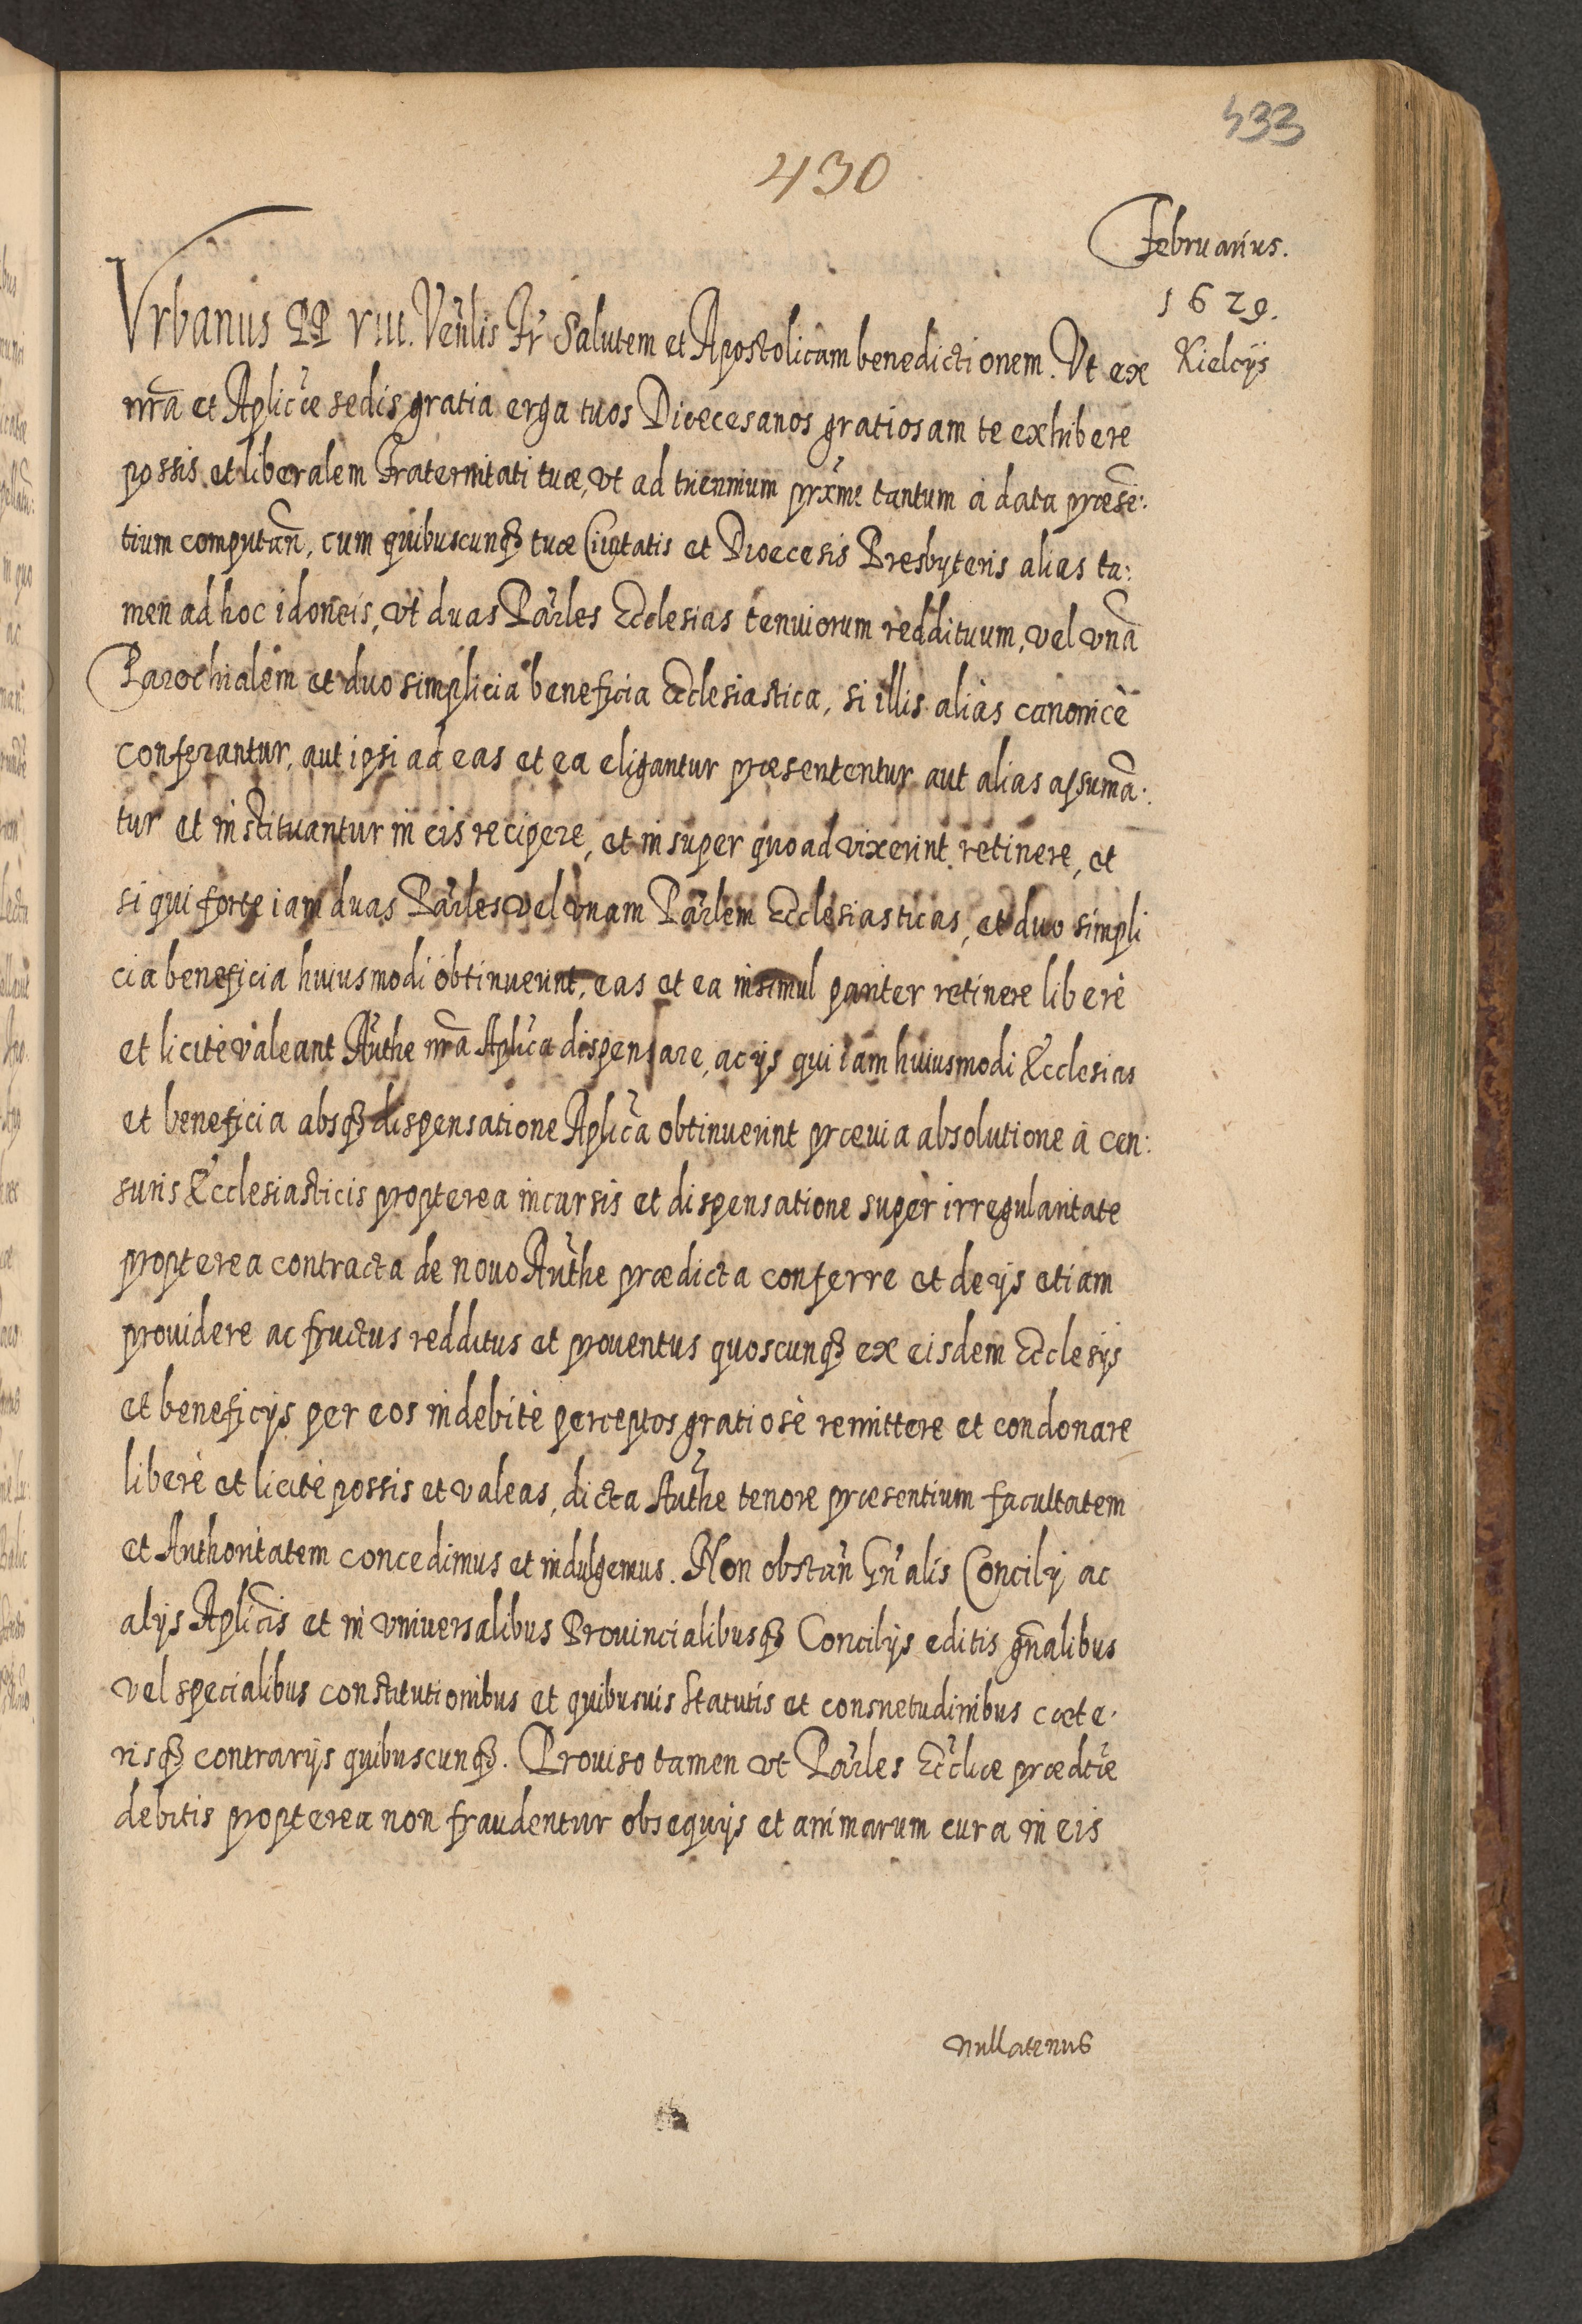 433
430
Februarius.
1629.
Kielcijs
Vrbanus PP VIII. Venlis Fr Salutem et Apostolicam benedictionem. Vt ex
nra et Aplicæ sedis gratia erga tuos Diœcesanos gratiosam te exhibere
possis et liberalem Fraternitati tuæ, vt ad triennium prxme tantum à data præsen:
tium computan, cum quibuscunqȝ tuæ Ciuitatis et Diœcesis Presbyteris alias ta:
men ad hoc idoneis, vt duas Parles Ecclesias tenuiorum reddituum, vel vnã
Parochialem et duo simplicia beneficia Ecclesiastica, si illis aliàs canonicè
conferantur, aut ipsi ad eas et ea eligantur præsententur aut alias assumã:
tur et instituantur in eis recipere, et insuper quoad vixerint retinere, et
si qui forte iam duas Parles vel vnam Parlem Ecclesiasticas, et duo simpli
cia beneficia huiusmodi obtinuerint, eas et ea insimul pariter retinere liberè
et licitè valeant Authe nrã Aplica dispensare, ac ijs qui iam huiusmodi Ecclesias
et beneficia absqȝ dispensatione Aplica obtinuerint præuia absolutione à cen:
suris Ecclesiasticis propterea incursis et dispensatione super irregularitate
propterea contracta de nouo Authe prædicta conferre et de ijs etiam
prouidere ac fructus redditus et prouentus quoscunqȝ ex eisdem Ecclesijs
et beneficijs per eos indebitè perceptos gratiosè remittere et condonare
liberè et licitè possis et valeas, dicta Authe tenore præsentium facultatem
et Authoritatem concedimus et indulgemus. Non obstan Gnalis Concilij ac
alijs Aplicis et in vniuersalibus Prouincialibusqȝ Concilijs editis gnalibus
vel specialibus constitutionibus et quibusuis statutis et consuetudinibus cæte:
risqȝ contrarijs quibuscunqȝ. Prouiso tamen vt Parles Ecclicæ prædtæ
debitis propterea non fraudentur obsequijs et animarum cura in eis
nullatenus